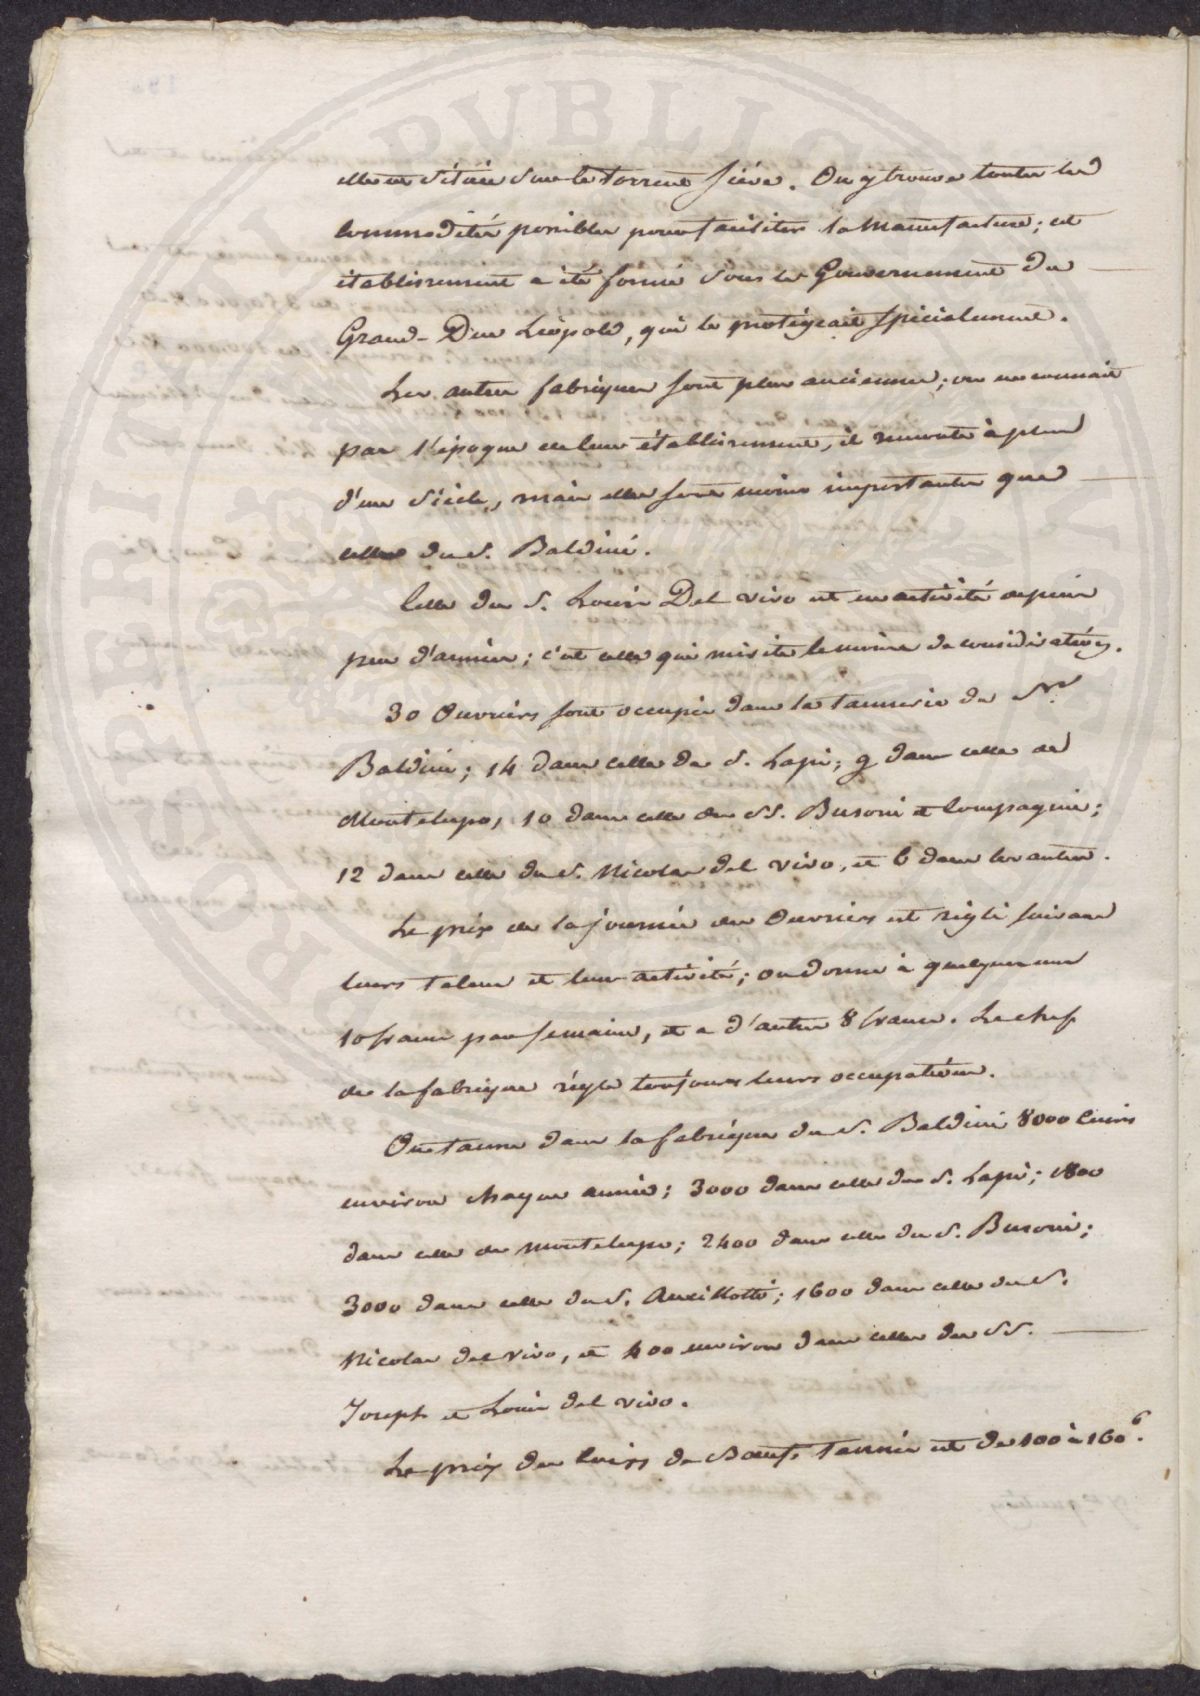 elle est située sur le torrent Siéve. On y trouve toutes les
commodités possibles pour faciliter la Manufacture; cet
établissement a été formé sous le Gouvernement du
Grand-Duc Léopold, qui le protégeait spécialement.
Les autres fabriques sont plus anciennes; on ne connait
pas l'époque de leur établissement, il remonte à plus
d'un Siècle, mais elles sont moins importantes que
celle du S. Baldini.
Celle du S. Louis Del vivo est en activité depuis
peu d'années; c'est celle qui mérite le moins de considération.
30 Ouvriers sont occupés dans la tannerie du Sr
Baldini; 14 dans celle du S. Lapi; 9 dans celle de
Montelupo, 10 dans celle des SS. Busoni et Compagnie;
12 dans celle du S. Nicolas del vivo, et 6 dans les autres.
Le prix de la journée des Ouvriers est réglé suivant
leurs talens et leur activité; on donne à quelques uns
10 francs par semaine, et a d'autres 8 francs. Le chef
de la fabrique régle toujours leurs occupations.
On tanne dans la fabrique du S. Baldini 8000 Cuirs
environ chaque année; 3000 dans celle du S. Lapi; 1800
dans celle de Montelupo; 2400 dans celle du S. Busoni;
3000 dans celle du S. 1600 dans celle du S.
Nicolas del vivo, et 400 environ dans celles des SS.
Joseph et Louis del vivo.
Le prix des Cuirs de Bœufs tannés est de 100 à 160